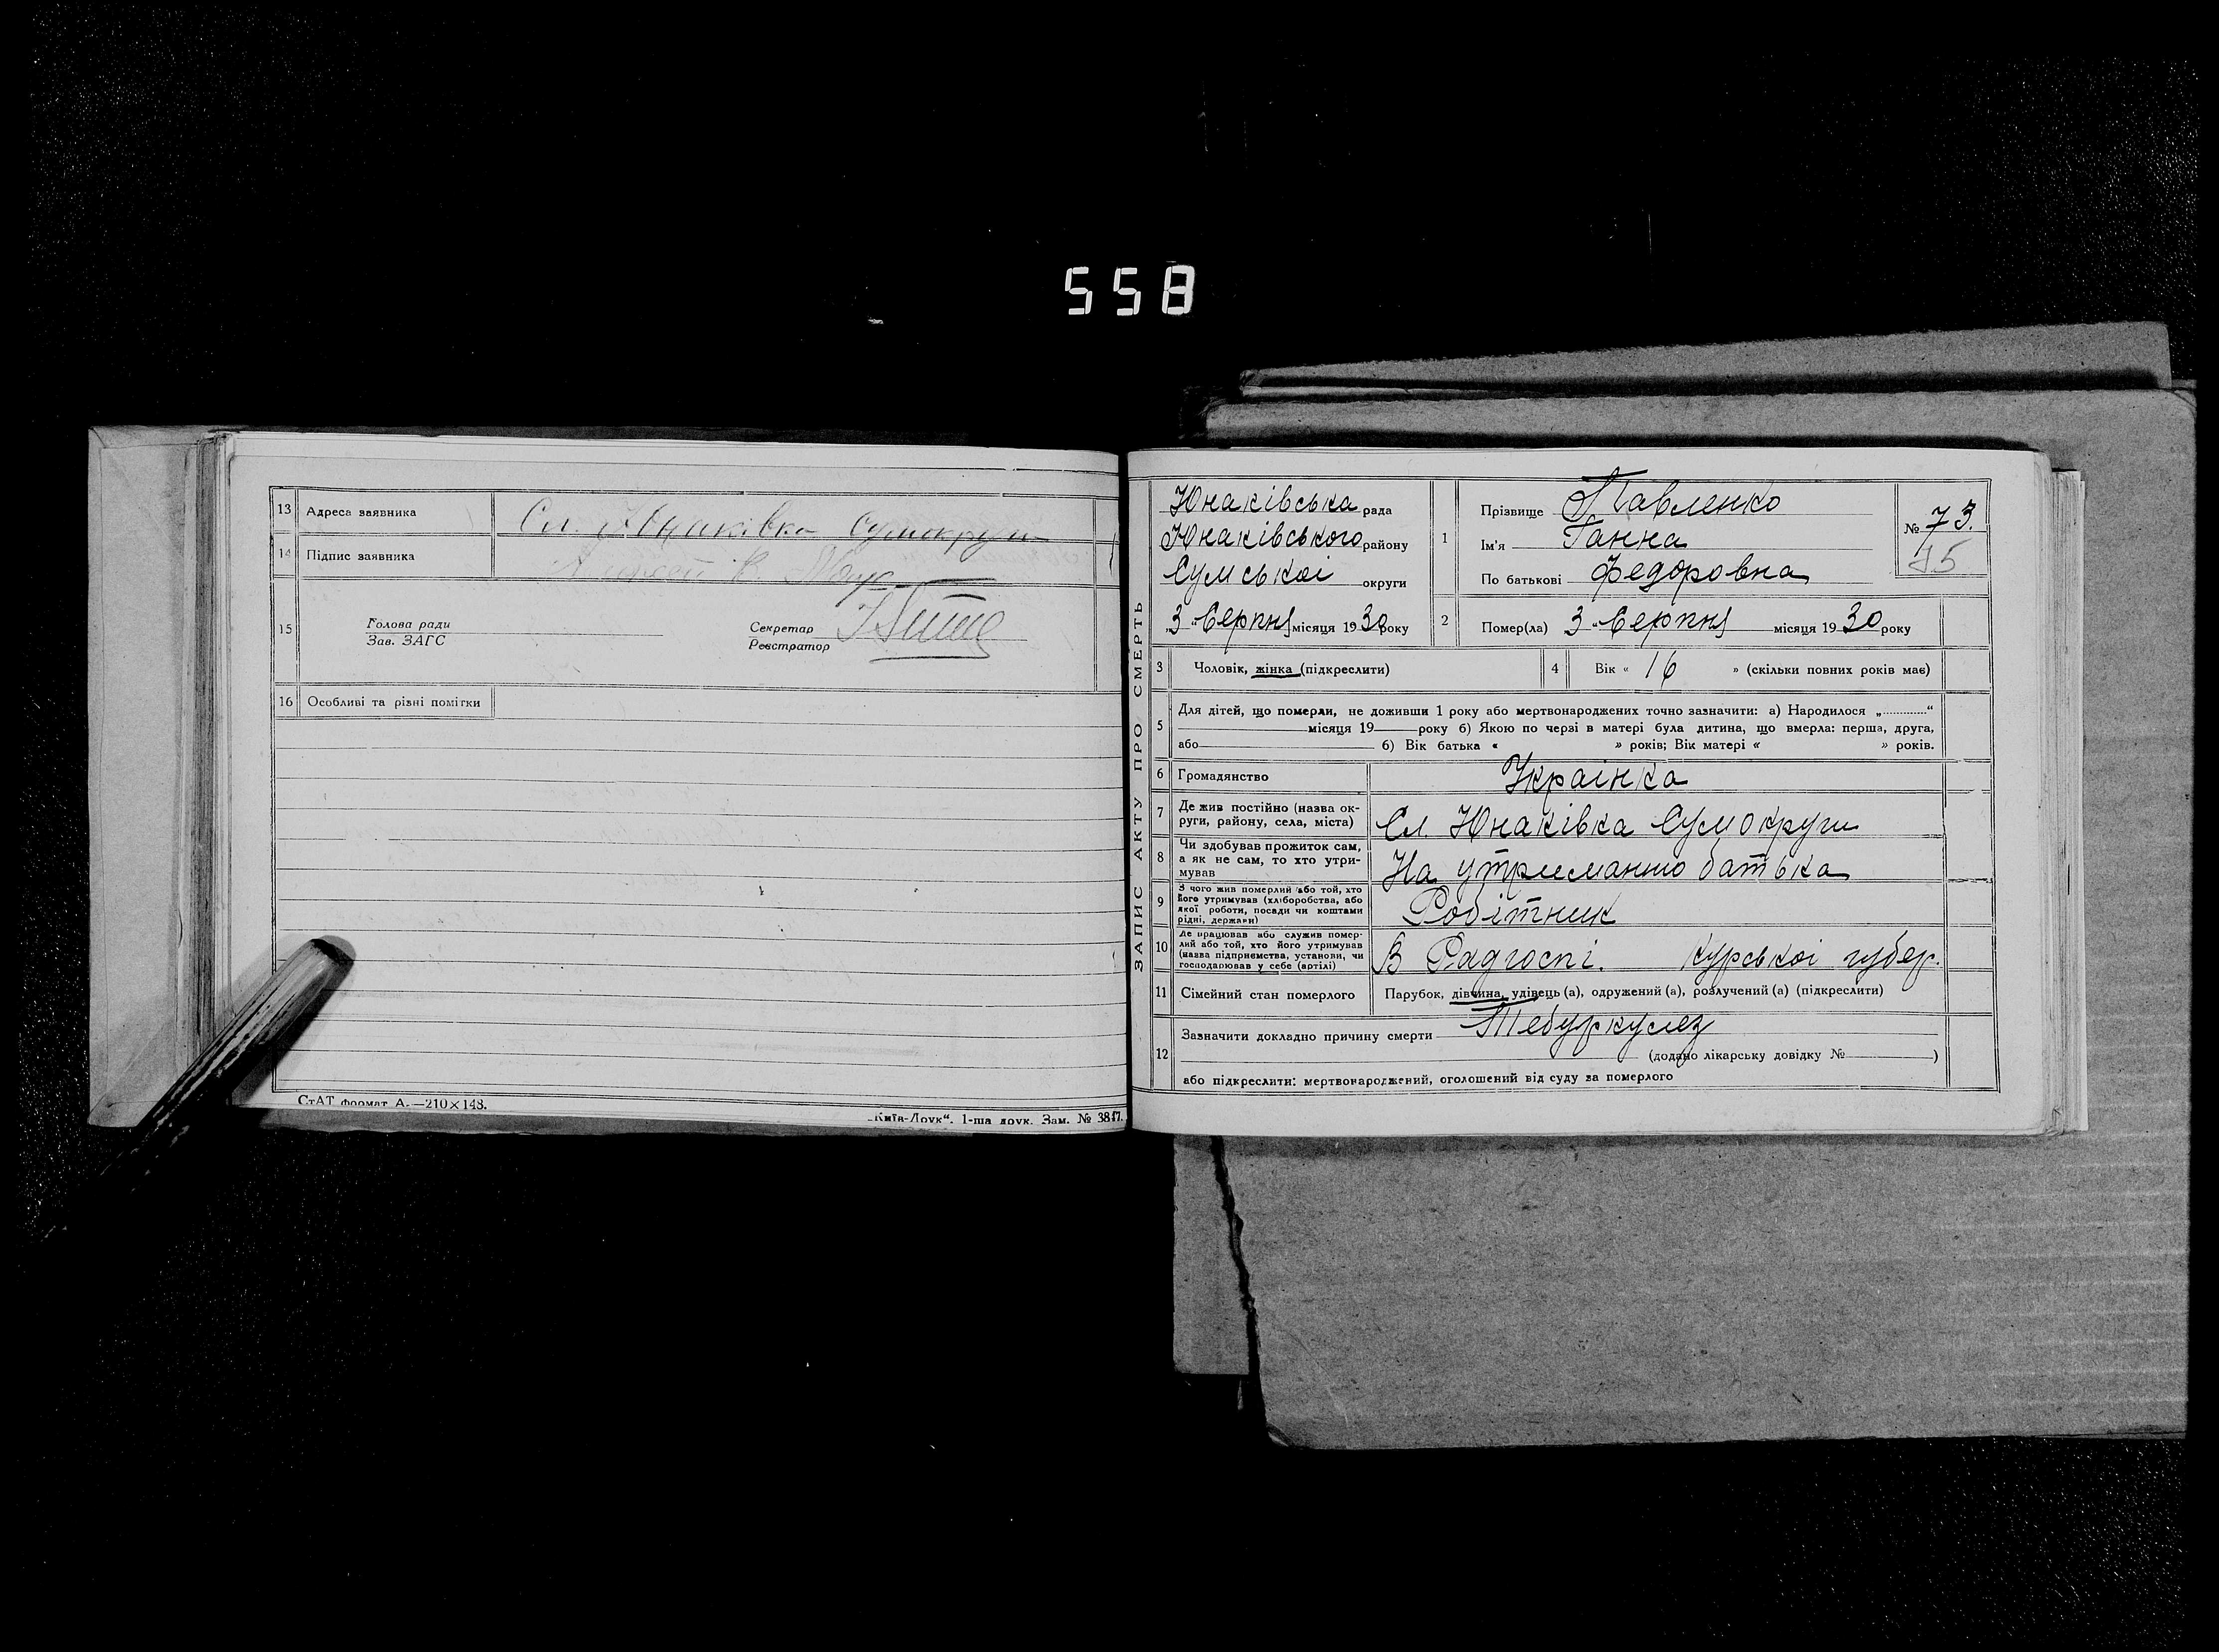 558
13 Адреса заявника Сл. Юнаківка Сумокруги
14 Підпис заявника
15 Голова ради
Зав. ЗАГС
Секретар
Реєстратор
16 Особливі та різні помітки
СтАТ формат А.—210×148.
„Київ-Друк“. 1-ша друк. Зам. № 3817.
ЗАПИС АКТУ ПРО СМЕРТЬ
Юнаківська рада
Юнаківського району
Сумськоі округи
„3“ Серпня місяця 1930 року
1 Прізвище Павленко
Ім'я Ганна
По батькові Федоровна
№ 73.
75
2 Помер(ла) 3 „Серпня місяця 1930 року
3 Чоловік, жінка (підкреслити)
4 Вік « 16 » (скільки повних років має)
5 Для дітей, що померли, не доживши 1 року або мертвонароджених точно зазначити: а) Народилося „............“
місяця 19 року б) Якою по черзі в матері була дитина, що вмерла: перша, друга,
або б) Вік батька « » років; Вік матері « » років.
6 Громадянство Украінка
7 Де жив постійно (назва ок-
руги, району, села, міста) Сл Юнаківка Сумокруги
8 Чи здобував прожиток сам,
а як не сам, то хто утри-
мував На утриманню батька
9 З чого жив померлий або той, хто
його утримував (хліборобства, або
якої роботи, посади чи коштами
рідні, держави) Робітник
10 Де працював або служив помер-
лий або той, хто його утримував
(назва підприємства, установи, чи
господарював у себе (артілі) В Радгоспі. Курськоі губер.
11 Сімейний стан померлого Парубок, дівчина, удівець (а), одружений (а), розлучений (а) (підкреслити)
12 Зазначити докладно причину смерти Тебуркулез
(додано лікарську довідку № )
або підкреслити: мертвонароджений, оголошений від суду за померлого